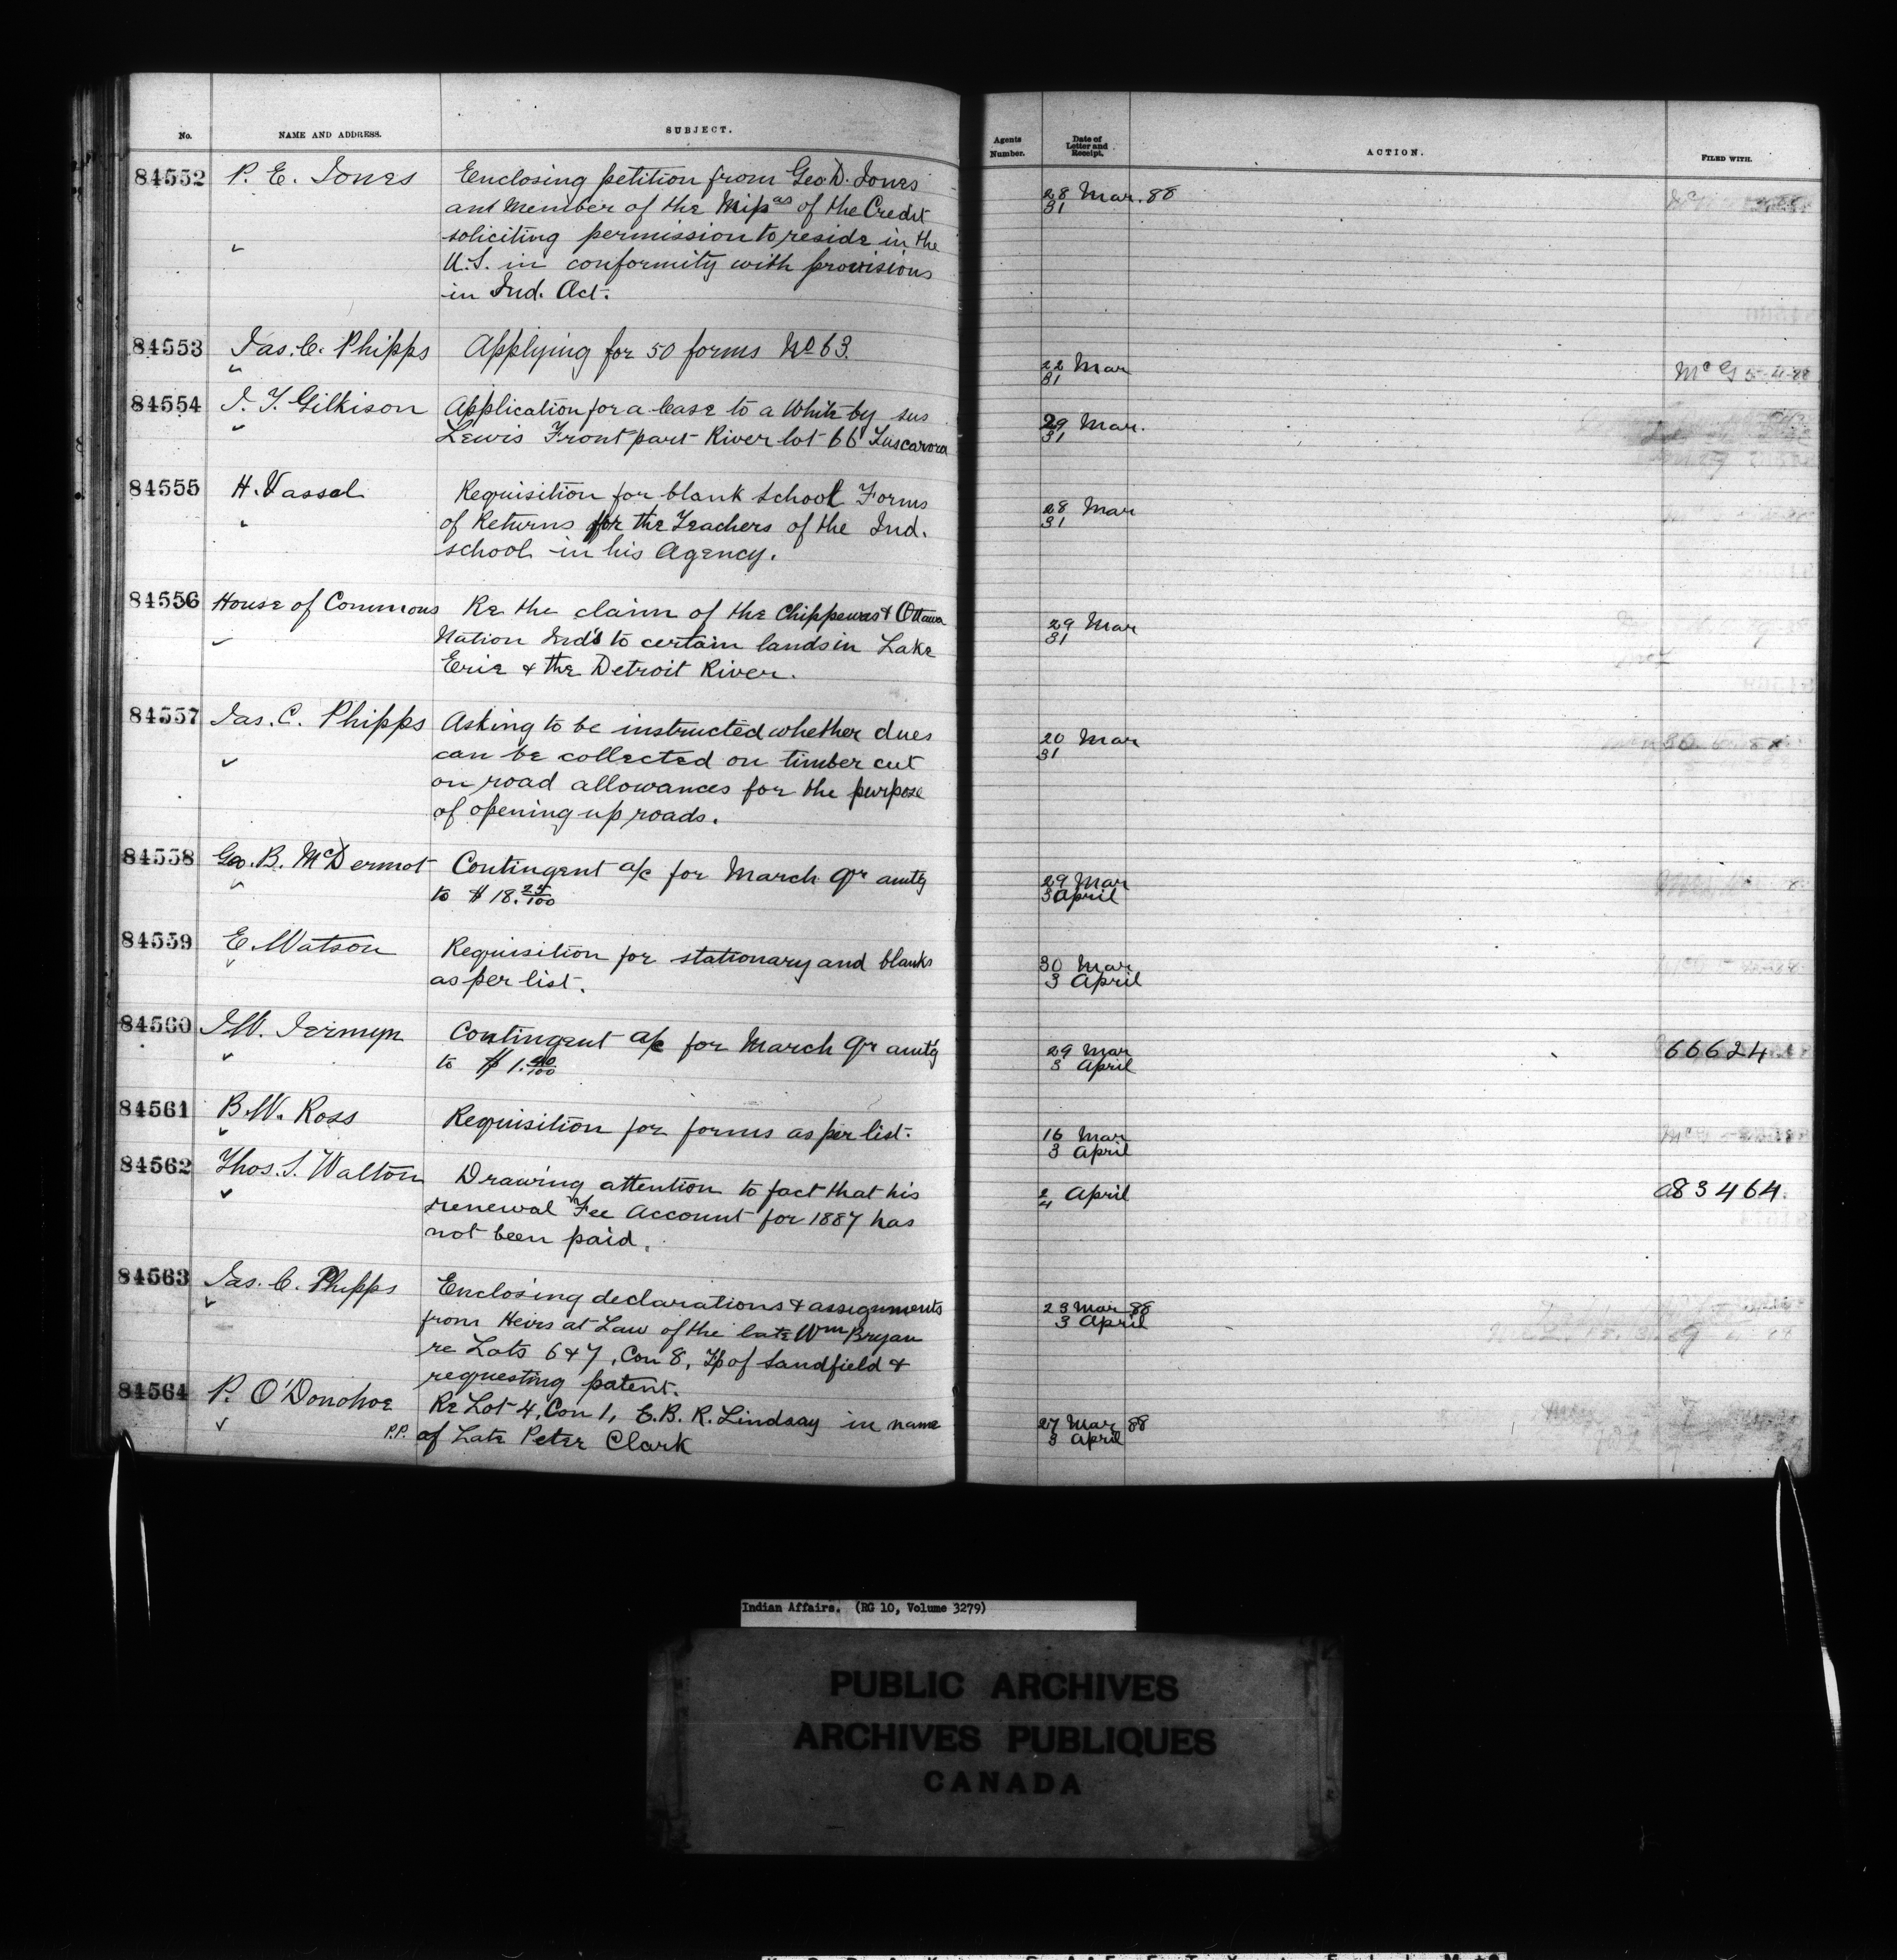 No. NAME AND ADDRESS. SUBJECT. Agents Number. Date of Letter and Receipt. ACTION. FILED WITH.
84552 P. E. Jones Enclosing petition from Geo D. Jones 28 Mar. 88
and Member of the Mipas of the Credit 31
soliciting permission to reside in the
U.S. in conformity with provisions
in Ind. Act.
84553 Jas. C. Phipps Applying for 50 forms No 63. 22 Mar McG 5-4-88
31
84554 J. T. Gilkison Application for a lease to a White by sus 29 Mar.
Lewis Front part River lot 66 Tuscarora 31
84555 H. Vassal Requisition for blank school Forms 28 Mar
of Returns for the Teachers of the Ind. 31
school in his Agency.
84556 House of Commons Re the claim of the Chippewas & Ottawa 29 Mar
Nation Ind's to certain lands in Lake 31
Erie & the Detroit River.
84557 Jas. C. Phipps Asking to be instructed whether dues 20 Mar
can be collected on timber cut 31
on road allowances for the purpose
of opening up roads.
84558 Geo. B. McDermot Contingent a/c for March qr amtg 29 Mar
to $18.25/100 3 April
84559 E. Watson Requisition for stationary and blanks 30 Mar
as per list. 3 April
84560 J.W. Jermyn Contingent a/c for March qr amt'g 29 Mar 66624
to $1.40/100 3 April
84561 B.W. Ross Requisition for forms as per list. 16 Mar
3 April
84562 Thos. S. Walton Drawing attention to fact that his 2 April a83464.
renewal Fee Account for 1887 has 4
not been paid.
84563 Jas. C. Phipps Enclosing declarations & assignments 23 Mar 88
from Heirs at Law of the late Wm Bryan 3 April
re Lots 6 & 7, Con 8, Tp of Sandfield &
requesting patent.
84564 P. O'Donohoe Re Lot 4, Con 1, E.B. R. Lindsay in name 27 Mar 88
P.P. of Late Peter Clark 3 April
Indian Affairs. (RG 10, Volume 3279)
PUBLIC ARCHIVES
ARCHIVES PUBLIQUES
CANADA